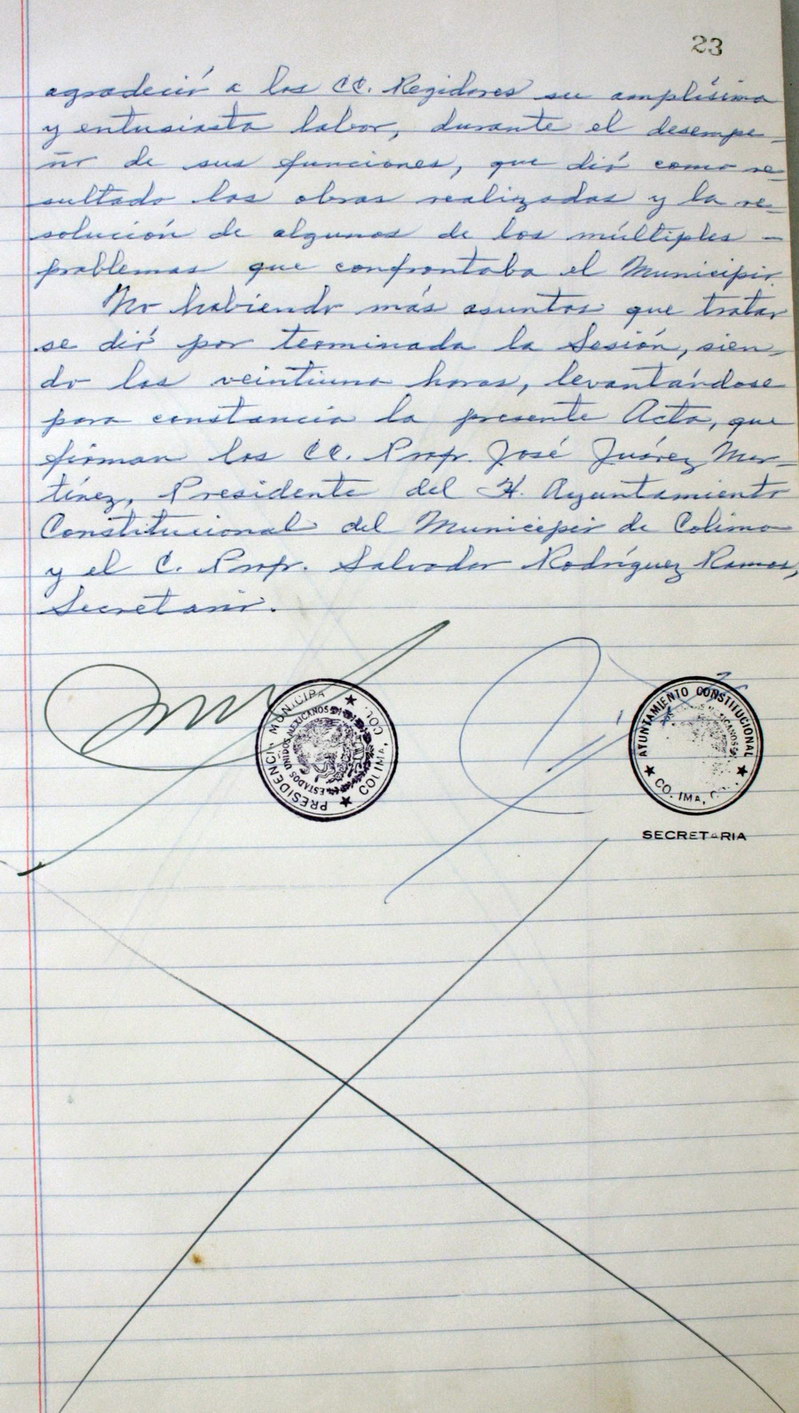 23
agradeció a los CC. Regidores su amplísima
y entusiasta labor, durante el desempe-
ño de sus funciones, que dió como re-
sultado las obras realizadas y la re-
solución de algunos de los múltiples -
problemas que confrontaba el Municipio.
No habiendo más asuntos que tratar
se dió por terminada la Sesión, sien-
do las veintiuna horas, levantándose
para constancia la presente Acta, que
firman los CC. Prof. José Juárez Mar-
tínez, Presidente del H. Ayuntamiento
Constitucional del Municipio de Colima
y el C. Prof. Salvador Rodríguez Ramos,
Secretario.
PRESIDENCIA MUNICIPA
COLIMA, COL.
ESTADOS UNIDOS MEXICANOS
AYUNTAMIENTO CONSTITUCIONAL
CO. IMA,
SECRETARIA